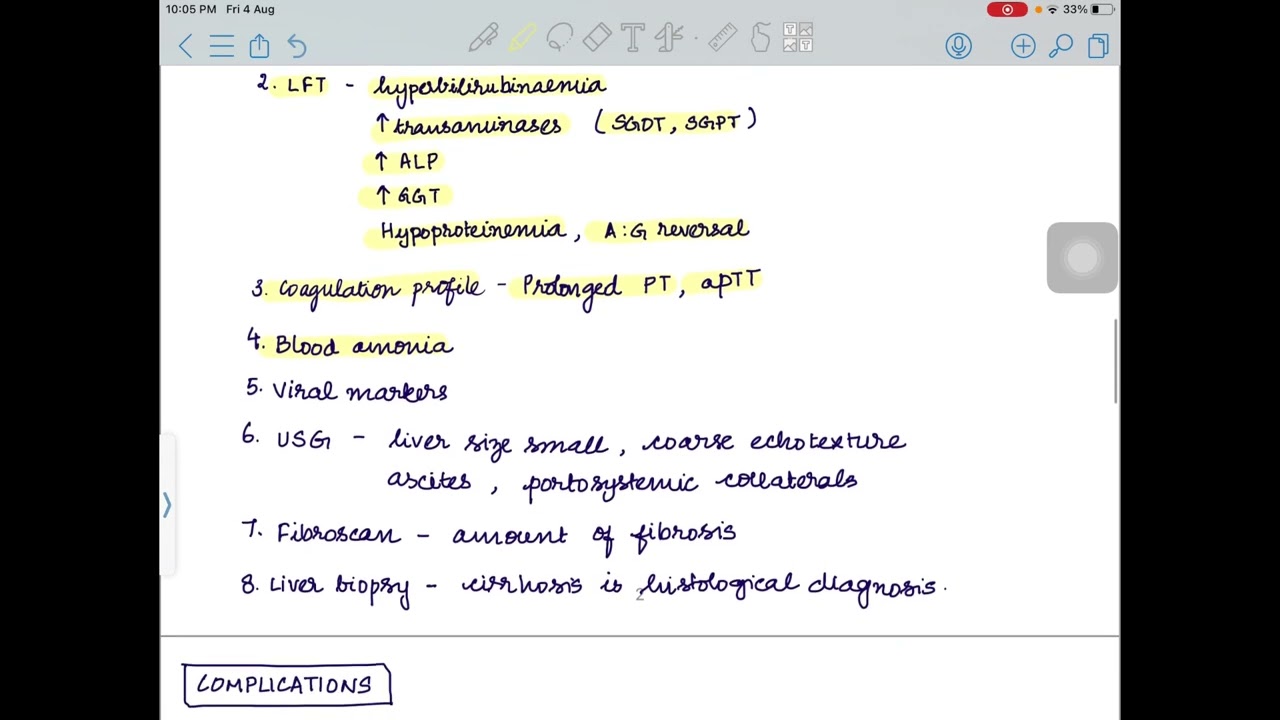 10:05 PM Fri 4 Aug 33%
2. LFT - hyperbilirubinaemia
↑ transaminases (SGOT, SGPT)
↑ ALP
↑ GGT
Hypoproteinemia, A:G reversal
3. Coagulation profile - Prolonged PT, aPTT
4. Blood amonia
5. Viral markers
6. USG - liver size small, coarse echotexture
ascites, portosystemic collaterals
7. Fibroscan - amount of fibrosis
8. Liver biopsy - cirrhosis is histological diagnosis.
COMPLICATIONS